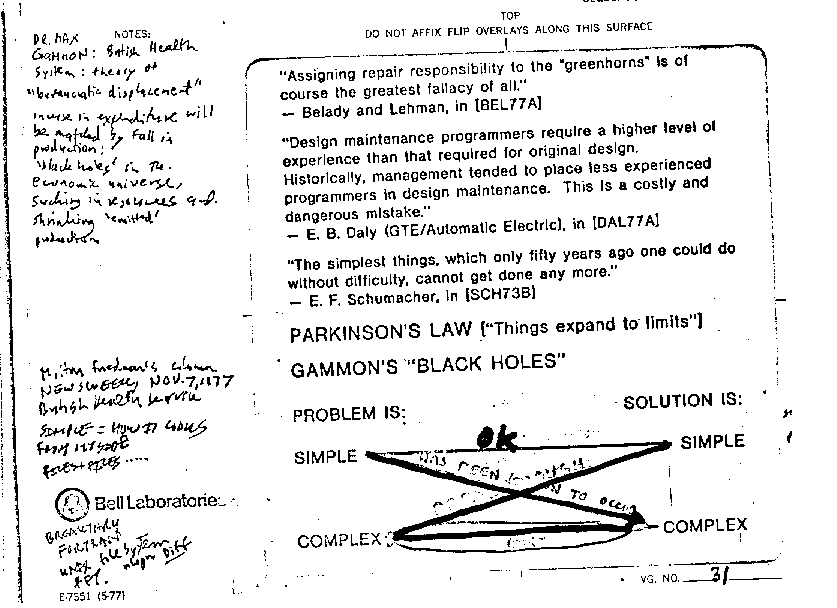 TOP
DO NOT AFFIX FLIP OVERLAYS ALONG THIS SURFACE
NOTES:
DR. MAX
GAMMON: British Health
System: theory of
"bureaucratic displacement"
increase in expenditure will
be matched by fall in
production:
"black holes" in the
economic universe,
sucking in resources and
shrinking "emitted"
production
"Assigning repair responsibility to the "greenhorns" is of
course the greatest fallacy of all."
— Belady and Lehman, in [BEL77A]
"Design maintenance programmers require a higher level of
experience than that required for original design.
Historically, management tended to place less experienced
programmers in design maintenance. This is a costly and
dangerous mistake."
— E. B. Daly (GTE/Automatic Electric), in [DAL77A]
"The simplest things, which only fifty years ago one could do
without difficulty, cannot get done any more."
— E. F. Schumacher, in [SCH73B]
PARKINSON'S LAW ["Things expand to limits"]
GAMMON'S "BLACK HOLES"
Milton Friedman's column
NEWSWEEK, NOV. 7, 1977
British Health Service
SIMPLE = HOW IT LOOKS
FROM
PROBLEM IS:
SOLUTION IS:
OK
SIMPLE
SIMPLE
HAS BEEN
TO OCCUR
COMPLEX
COMPLEX
Bell Laboratories
FORTRAN
UNIX file system
E-7351 (5-77)
VG. NO. 31